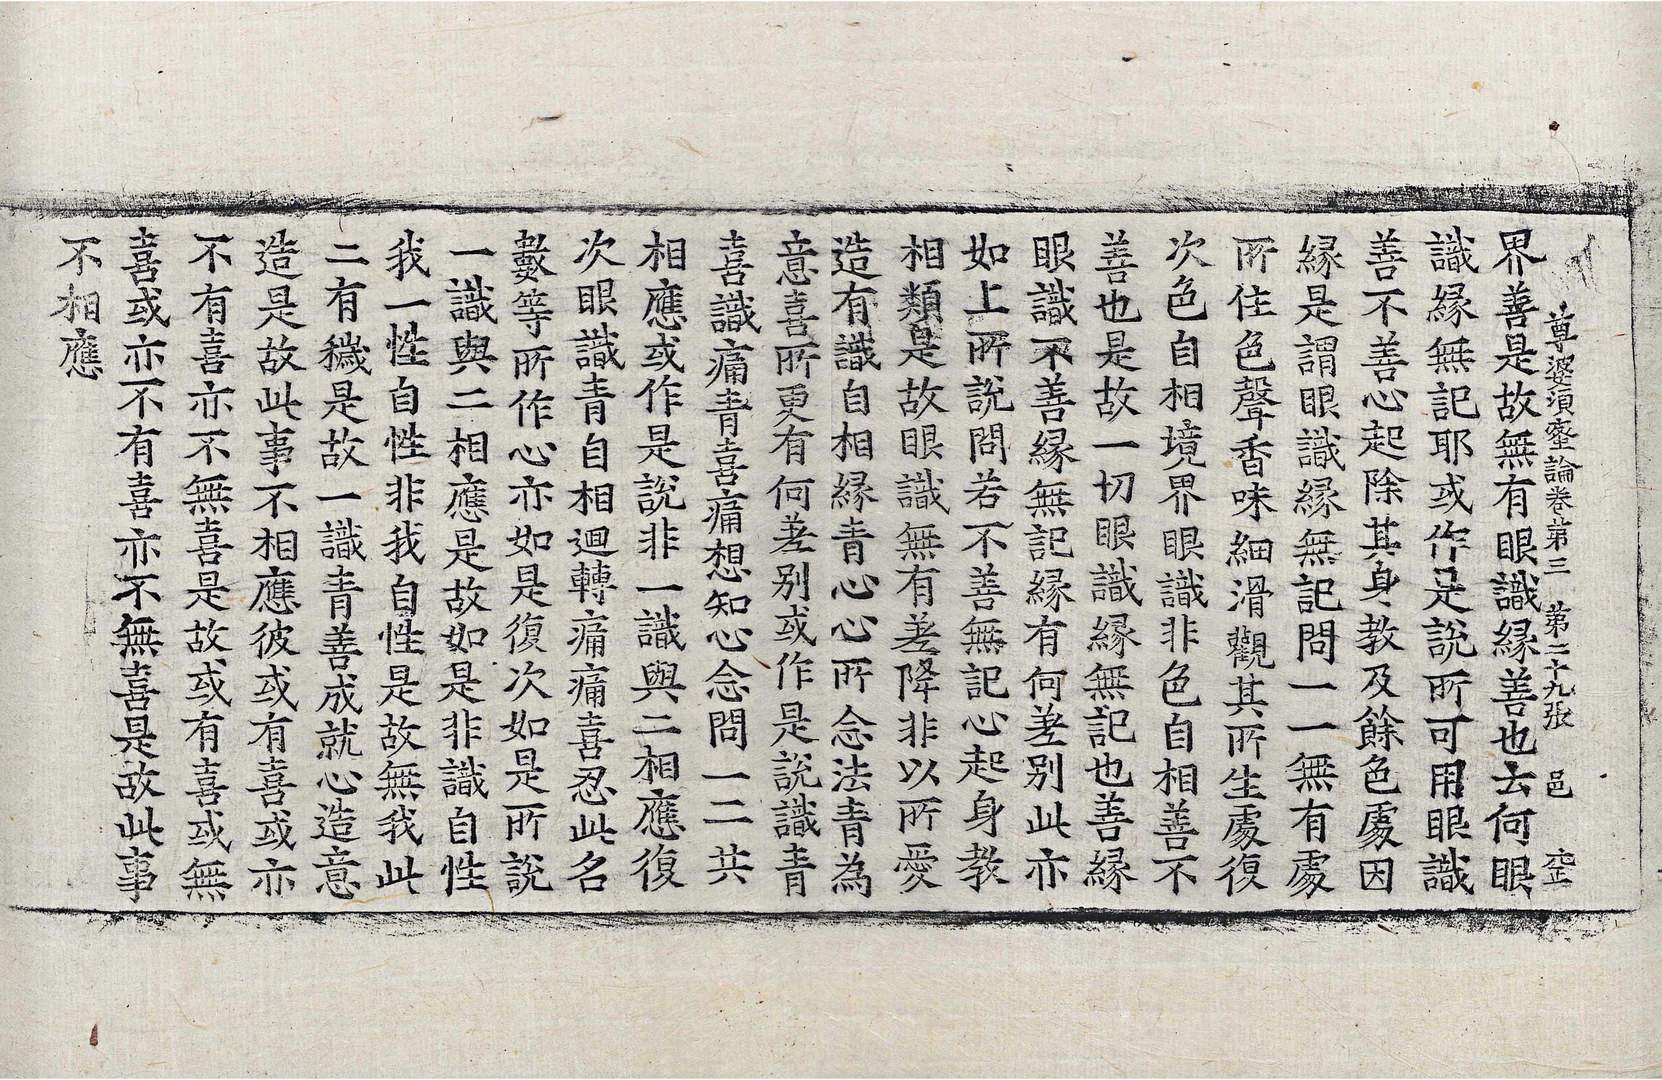 尊婆須蜜論卷第三 第二十九張 邑
界善是故無有眼識緣善也去何眼
識緣無記耶或作是說所可用眼識
善不善心起除其身教及餘色處因
緣是謂眼識緣無記問一一無有處
所住色聲香味細滑觀其所生處復
次色自相境界眼識非色自相善不
善也是故一切眼識緣無記也善緣
眼識不善緣無記緣有何差別此亦
如上所說問若不善無記心起身教
相類是故眼識無有差降非以所愛
造有識自相緣青心心所念法青為
意喜所更有何差別或作是說識青
喜識痛青喜痛想知心念問一二共
相應或作是說非一識與二相應復
次眼識青自相迴轉痛痛喜忍此名
數等所作心亦如是復次如是所說
一識與二相應是故如是非識自性
我一性自性非我自性是故無我此
二有穢是故一識青善成就心造意
造是故此事不相應彼或有喜或亦
不有喜亦不無喜是故或有喜或無
喜或亦不有喜亦不無喜是故此事
不相應